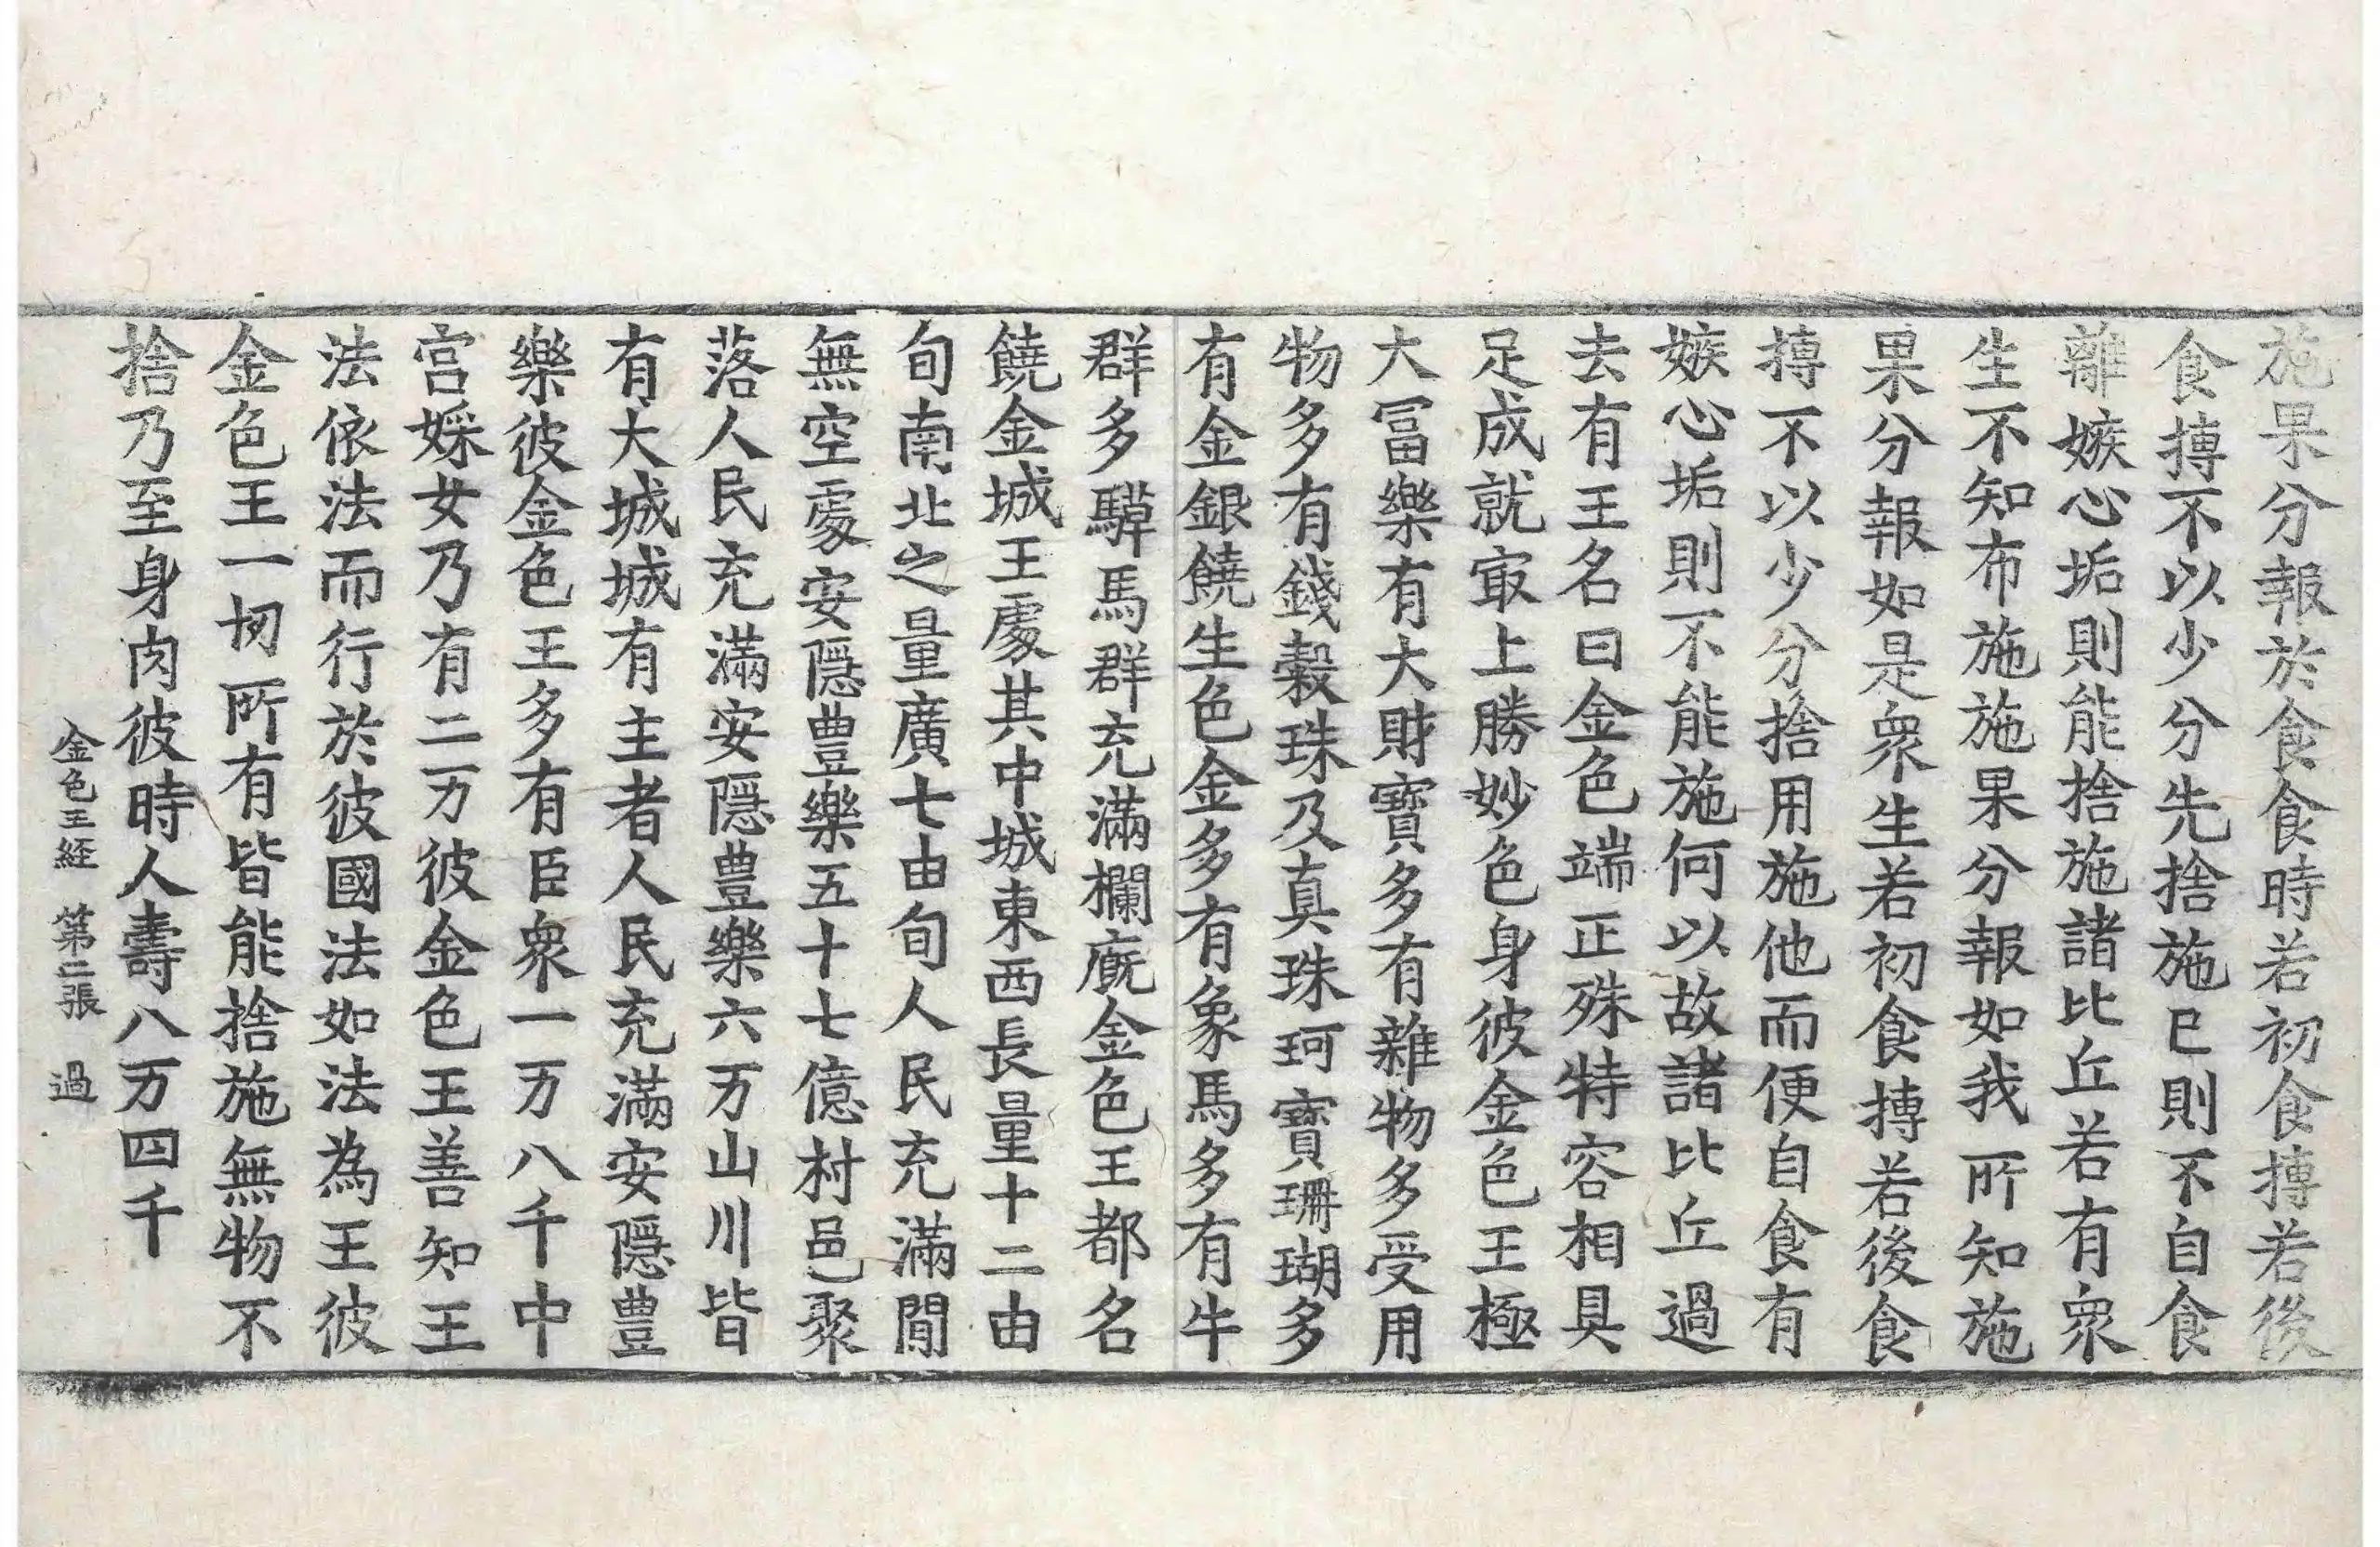 施果分報於食食時若初食摶若後
食摶不以少分先捨施已則不自食
離嫉心垢則能捨施諸比丘若有衆
生不知布施施果分報如我所知施
果分報如是衆生若初食摶若後食
摶不以少分捨用施他而便自食有
嫉心垢則不能施何以故諸比丘過
去有王名曰金色端正殊特容相具
足成就㝡上勝妙色身彼金色王極
大冨樂有大財寶多有雜物多受用
物多有錢穀珠及真珠珂寶珊瑚多
有金銀饒生色金多有象馬多有牛
群多驛馬群充滿欄廐金色王都名
饒金城王䖏其中城東西長量十二由
旬南北之量廣七由旬人民充滿閒
無空䖏安隱豊樂五十七億村邑聚
落人民充滿安隱豊樂六万山川皆
有大城城有主者人民充滿安隱豊
樂彼金色王多有臣衆一万八千中
宮婇女乃有二万彼金色王善知王
法依法而行於彼國法如法為王彼
金色王一切所有皆能捨施無物不
捨乃至身肉彼時人壽八万四千
金色王経 第二張 過